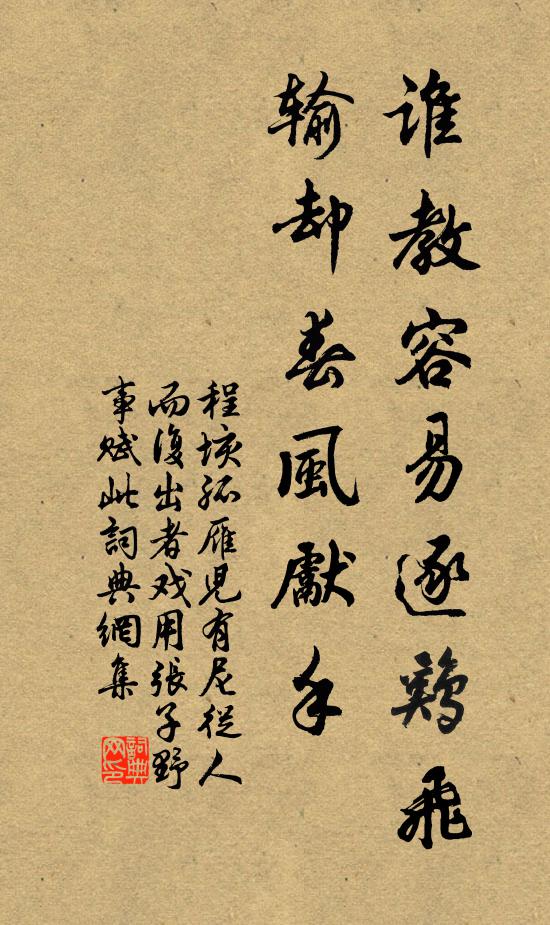 谁教容易逐鷄飛
输却春風獻手
程垓孤雁児有尼從人
而復出者戏用張子野
事赋此詞典網集
詞典网印